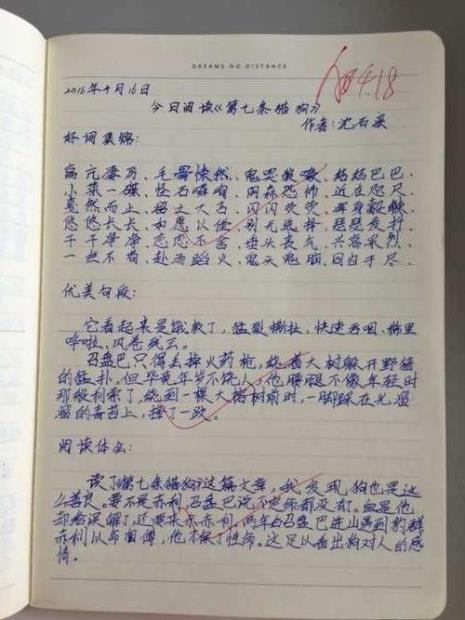 DREAMS NO DISTANCE
阅 4.18
2016年4月16日
今日阅读《第七条猎狗》
作者:沈石溪
好词集锦:
高亢凄厉、毛骨悚然、鬼哭狼嚎、结结巴巴、
小菜一碟、怪石嶙峋、阴森恐怖、近在咫尺、
戛然而止、 闪闪荧荧、浑身
悠悠长长、如愿以偿、别无选择、琵琶发抖、
干干净净、恋恋不舍、垂头丧气、兴高采烈、
一丝不苟、赴汤蹈火、鬼头鬼脑、同归于尽、
优美句段:
它看起来是饿软了,猛烈撕扯、快速吞咽、稀里
哗啦、风卷残云。
召盘巴只得丢掉火药枪,绕着大树躲开野猪
的猛扑,但毕竟年岁不饶人,他腰腿不像年轻时
那般利索了,绕到一棵大榕树前时,一脚踩在光溜
溜的青苔上,摔了一跤。
阅读体会:
读了《第七条猎狗》这篇文章,我发现狗也是这
么善良。要不是赤利,召盘巴说不定命都没有。但是他
却给误解了,还要杀赤利,两年后召盘巴进山遇到豺群
赤利以命相博,他才保了性命。这足以看出狗对人的感
情。